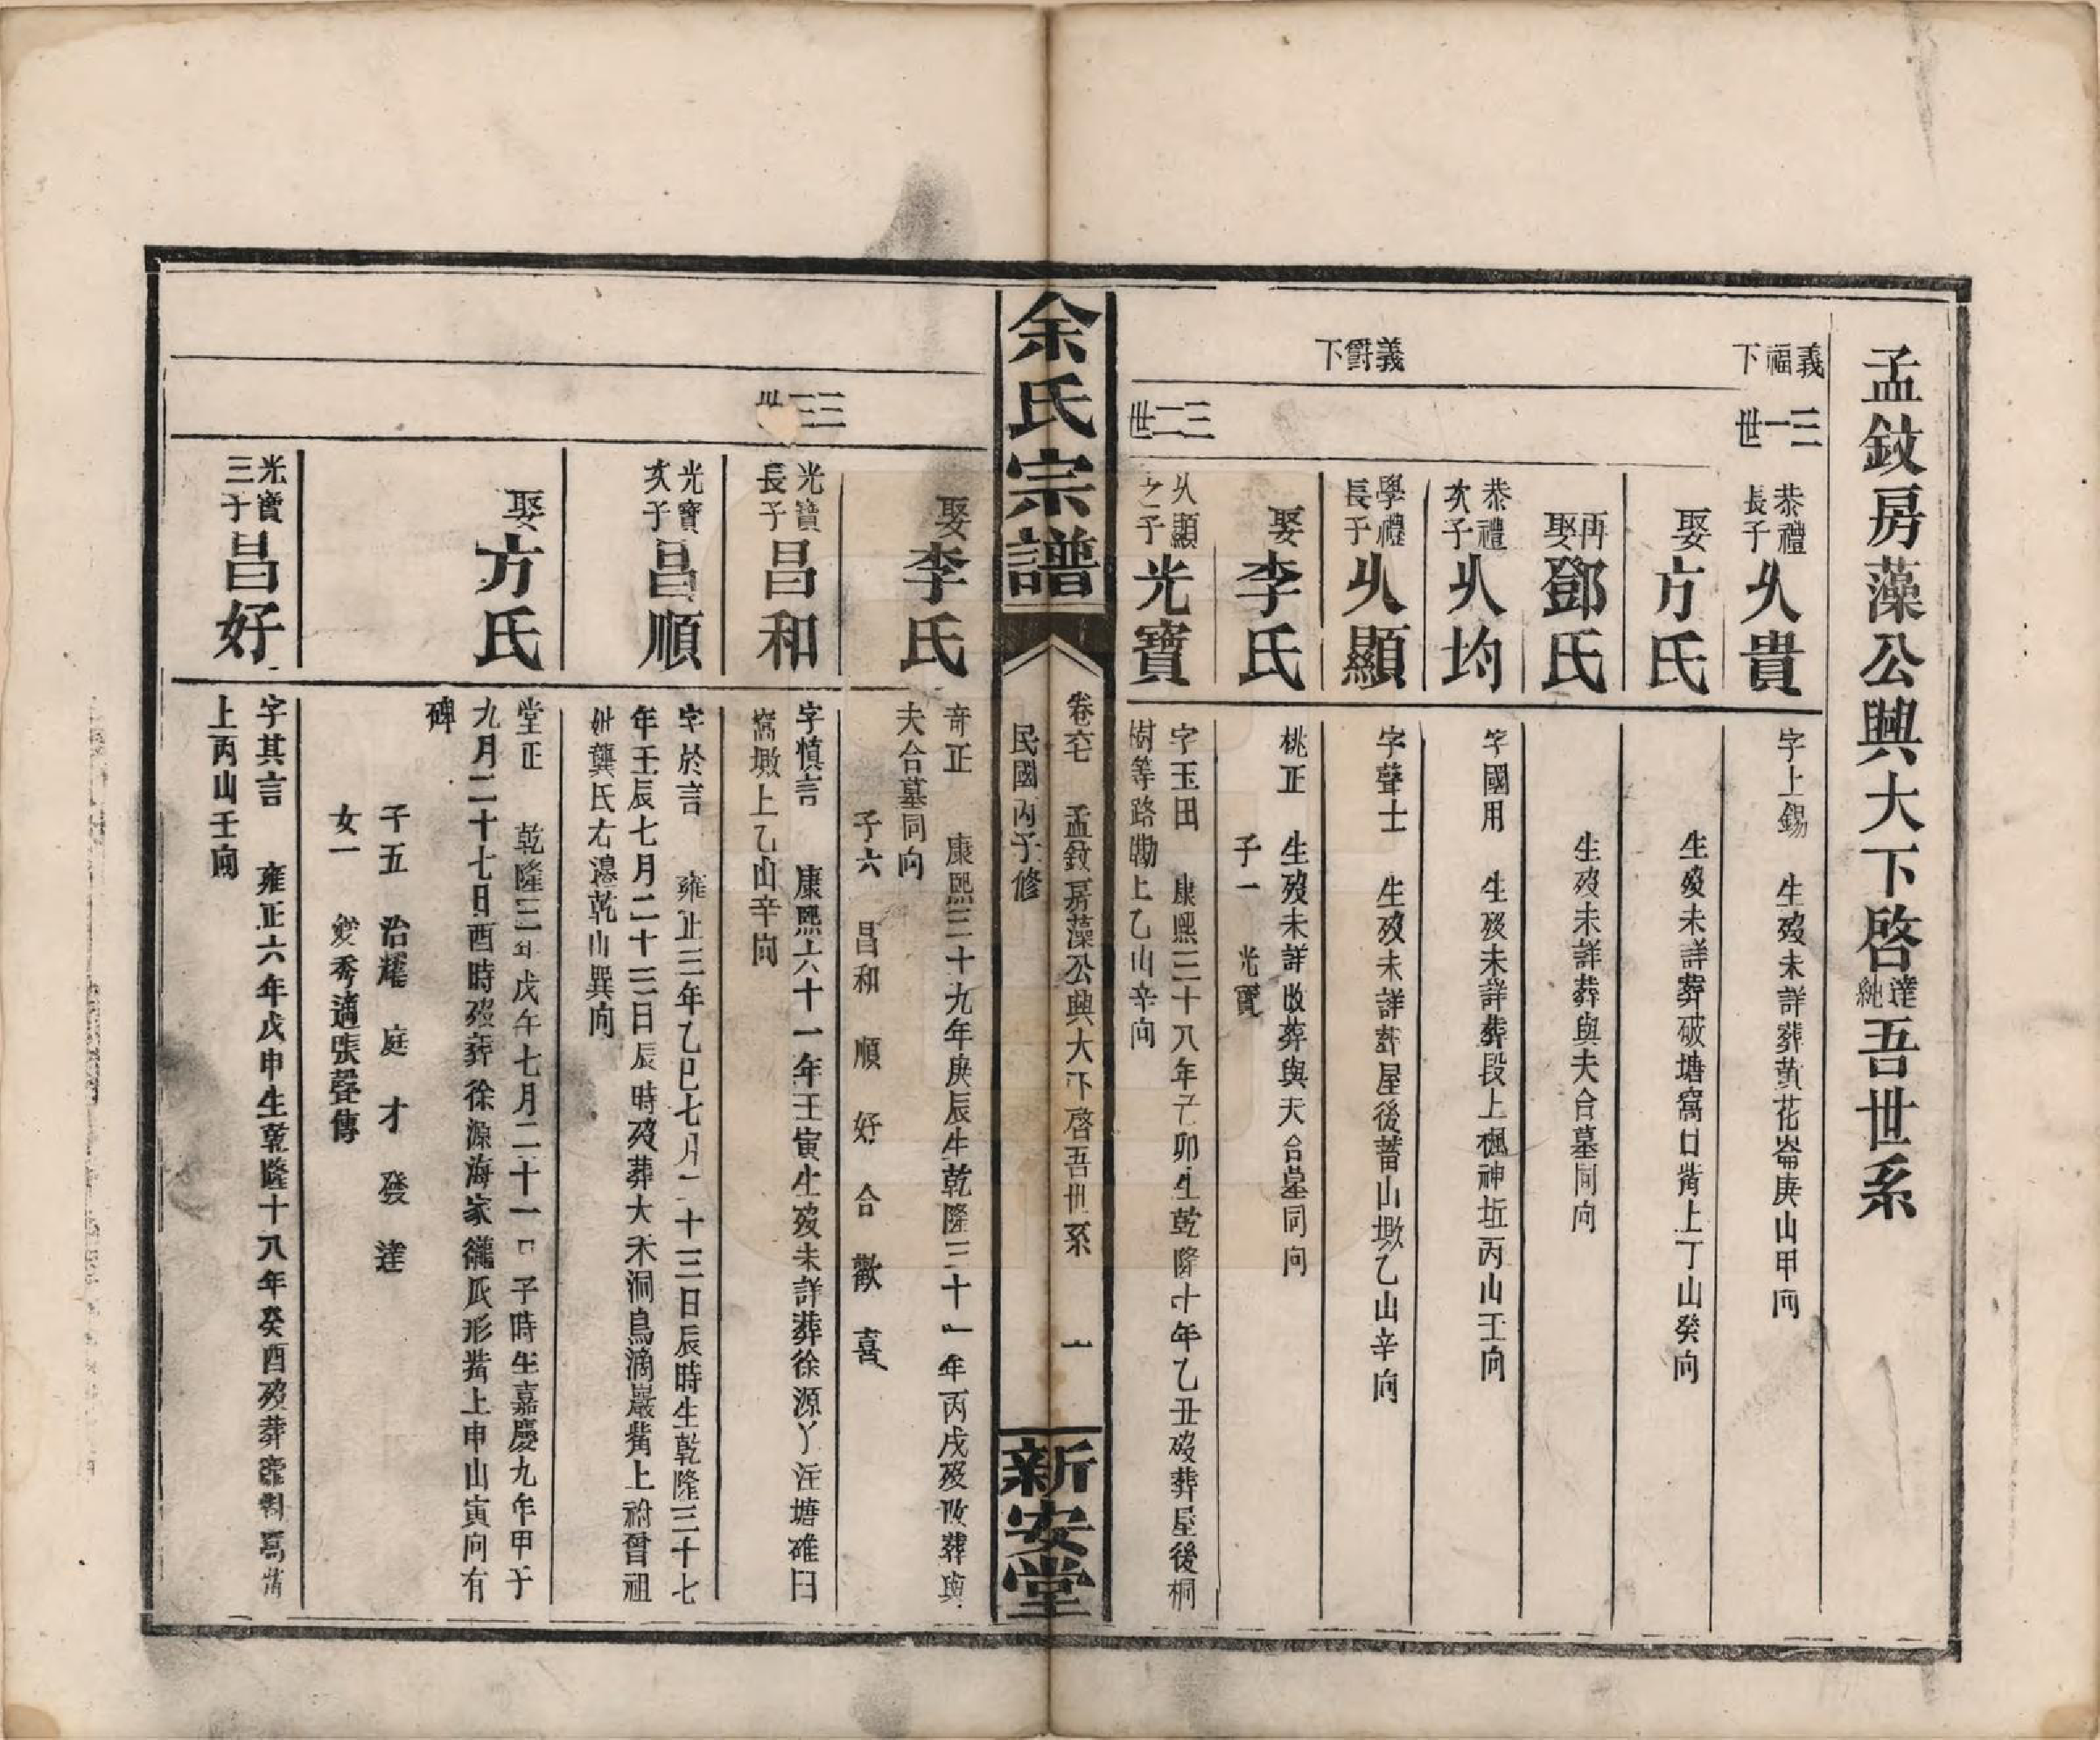 孟鈫房藻公興大下啓達純吾世系
義福下
三一世
恭禮長子 乆貴 字上錫 生歿未詳葬黃花崙庚山甲向
娶方氏 生歿未詳葬破塘窩口嘴上丁山癸向
再娶鄧氏 生歿未詳葬與夫合墓同向
恭禮次子 乆均 字國用 生歿未詳葬段上楓神坵丙山壬向
義爵下
學禮長子 乆顯 字聲士 生歿未詳葬屋後蓄山墩乙山辛向
娶李氏 桃正 生歿未詳改葬與夫合墓同向
子一 光寶
三二世
乆顯之子 光寶 字玉田 康熙三十八年己卯生乾隆十年乙丑歿葬屋後桐
樹等路勘上乙山辛向
余氏宗譜 卷六七 孟鈫房藻公興大下啓吾世系 一
民國丙子修
新安堂
娶李氏 奇正 康熙三十九年庚辰生乾隆三十一年丙戌歿改葬與
夫合墓同向
子六 昌和 順 好 合 歡 喜
三三世
光寶長子 昌和 字慎言 康熙六十一年壬寅生歿未詳葬徐源丫注塘碓臼
窩墩上乙山辛向
光寶次子 昌順 字於言 雍正三年乙巳七月二十三日辰時生乾隆三十七
年壬辰七月二十三日辰時歿葬大禾洞鳥滴巖嘴上祔曾祖
妣龔氏右邊乾山巽向
娶方氏 堂正 乾隆三年戊午七月二十一日子時生嘉慶九年甲子
九月二十七日酉時歿葬徐源海家㘵瓜形嘴上申山寅向有
碑
子五 治耀 庭 才 發 達
女一 愛秀適張聲傳
光寶三子 昌好 字其言 雍正六年戊申生乾隆十八年癸酉歿葬窩嘴
上丙山壬向